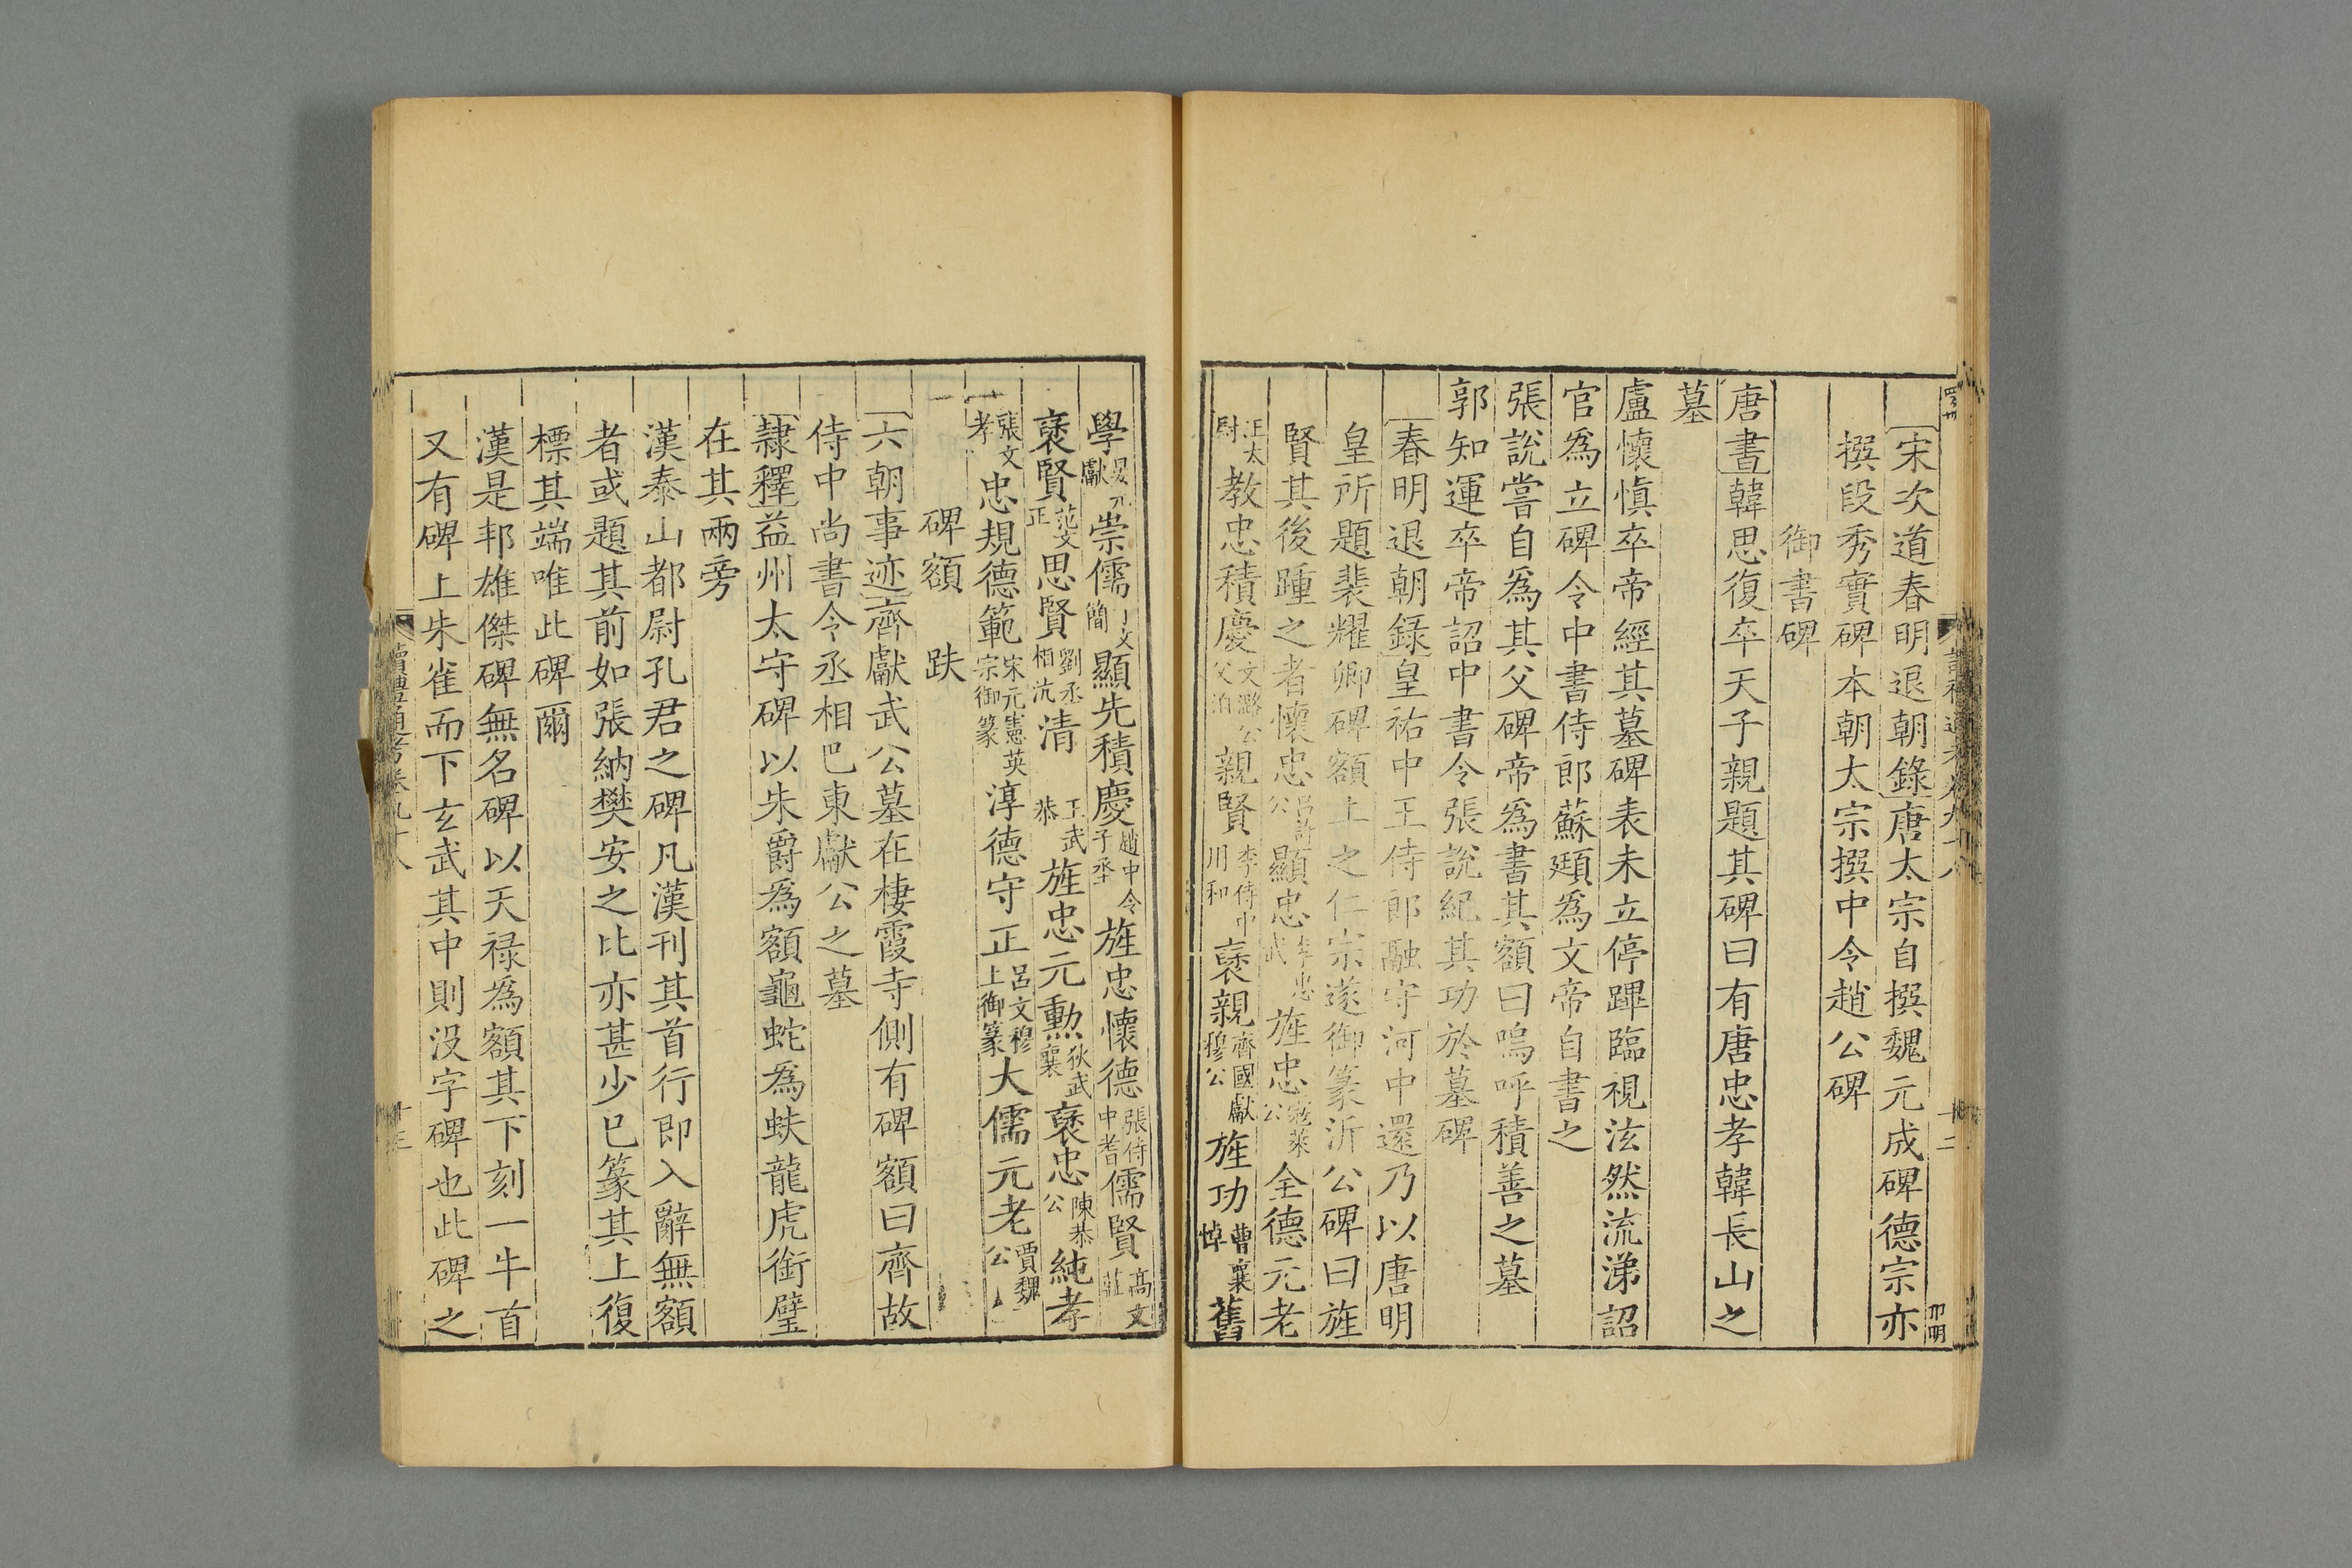 宋次道春明退朝錄唐太宗自撰魏元成碑德宗亦
撰段秀實碑本朝太宗撰中令趙公碑
御書碑
唐書韓思復卒天子親題其碑曰有唐忠孝韓長山之
墓
盧懷慎卒帝經其墓碑表未立停蹕臨視泫然流涕詔
官爲立碑令中書侍郎蘇頲爲文帝自書之
張說嘗自爲其父碑帝爲書其額曰嗚呼積善之墓
郭知運卒帝詔中書令張說紀其功於墓碑
春明退朝錄皇祐中王侍郎融守河中還乃以唐明
皇所題裴耀卿碑額上之仁宗遂御篆沂公碑曰旌
賢其後踵之者懷忠呂許公顯忠李忠武旌忠寇萊公全德元老
王太尉教忠積慶文潞公父洎親賢李侍中用和褒親齊國獻穆公旌功曹襄悼舊
學晏元獻崇儒丁文簡顯先積慶趙中令子丞旌忠懷德張侍中耆儒賢高文莊
褒賢范文正思賢劉丞相沆清王武恭旌忠元勳狄武襄褒忠陳恭公純孝
張文孝忠規德範宋元憲英宗御篆淳德守正呂文穆上御篆大儒元老賈魏公
碑額　趺
六朝事迹齊獻武公墓在棲霞寺側有碑額曰齊故
侍中尚書令丞相巴東獻公之墓
隷釋益州太守碑以朱爵爲額龜蛇爲蚨龍虎銜璧
在其兩旁
漢泰山都尉孔君之碑凡漢刊其首行即入辭無額
者或題其前如張納樊安之比亦甚少巳篆其上復
標其端唯此碑爾
漢是邦雄傑碑無名碑以天祿爲額其下刻一牛首
又有碑上朱雀而下玄武其中則没字碑也此碑之
讀禮通考卷九十八